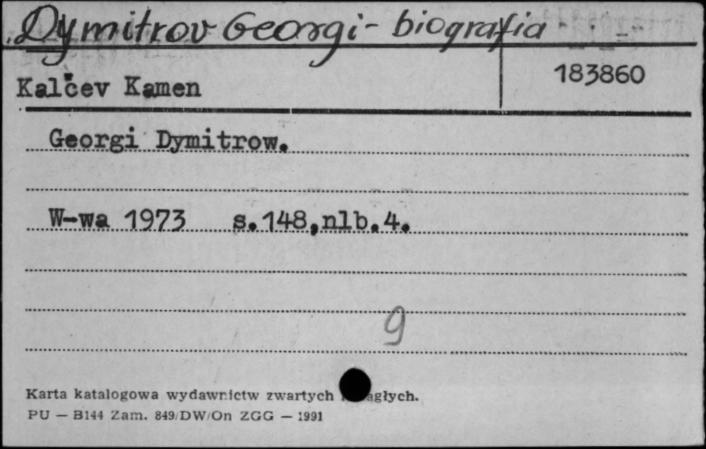 Dymitrov Georgi - biografia
183860
Kalčev Kamen
Georgi Dymitrow.
W-wa 1973 s.148,nlb.4.
9
Karta katalogowa wydawnictw zwartych
PU — B144 Zam. 849/DW/On ZGG — 1991